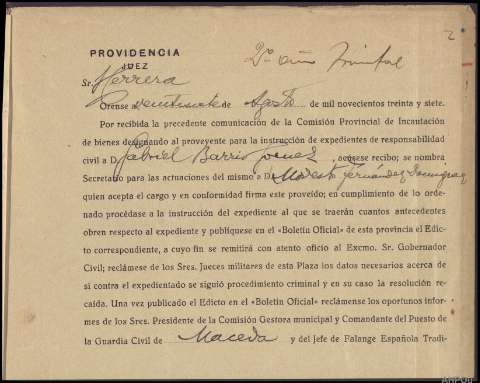 2
PROVIDENCIA
2º año Triunfal
JUEZ
Sr. Herrera
Orense a veintisiete de Agosto de mil novecientos treinta y siete.
Por recibida la precedente comunicación de la Comisión Provincial de Incautación
de bienes designando al proveyente para la instrucción de expedientes de responsabilidad
civil a D. Gabriel Barrio , acúsese recibo; se nombra
Secretario para las actuaciones del mismo a D. Modesto Fernández Domínguez
quien acepta el cargo y en conformidad firma este proveído; en cumplimiento de lo orde-
nado procédase a la instrucción del expediente al que se traerán cuantos antecedentes
obren respecto al expediente y publíquese en el «Boletín Oficial» de esta provincia el Edic-
to correspondiente, a cuyo fin se remitirá con atento oficio al Excmo. Sr. Gobernador
Civil; reclámese de los Sres. Jueces militares de esta Plaza los datos necesarios acerca de
si contra el expedientado se siguió procedimiento criminal y en su caso la resolución re-
caída. Una vez publicado el Edicto en el «Boletín Oficial» reclámense los oportunos infor-
mes de los Sres. Presidente de la Comisión Gestora municipal y Comandante del Puesto de
la Guardia Civil de Maceda y del Jefe de Falange Española Tradi-
AHPOu